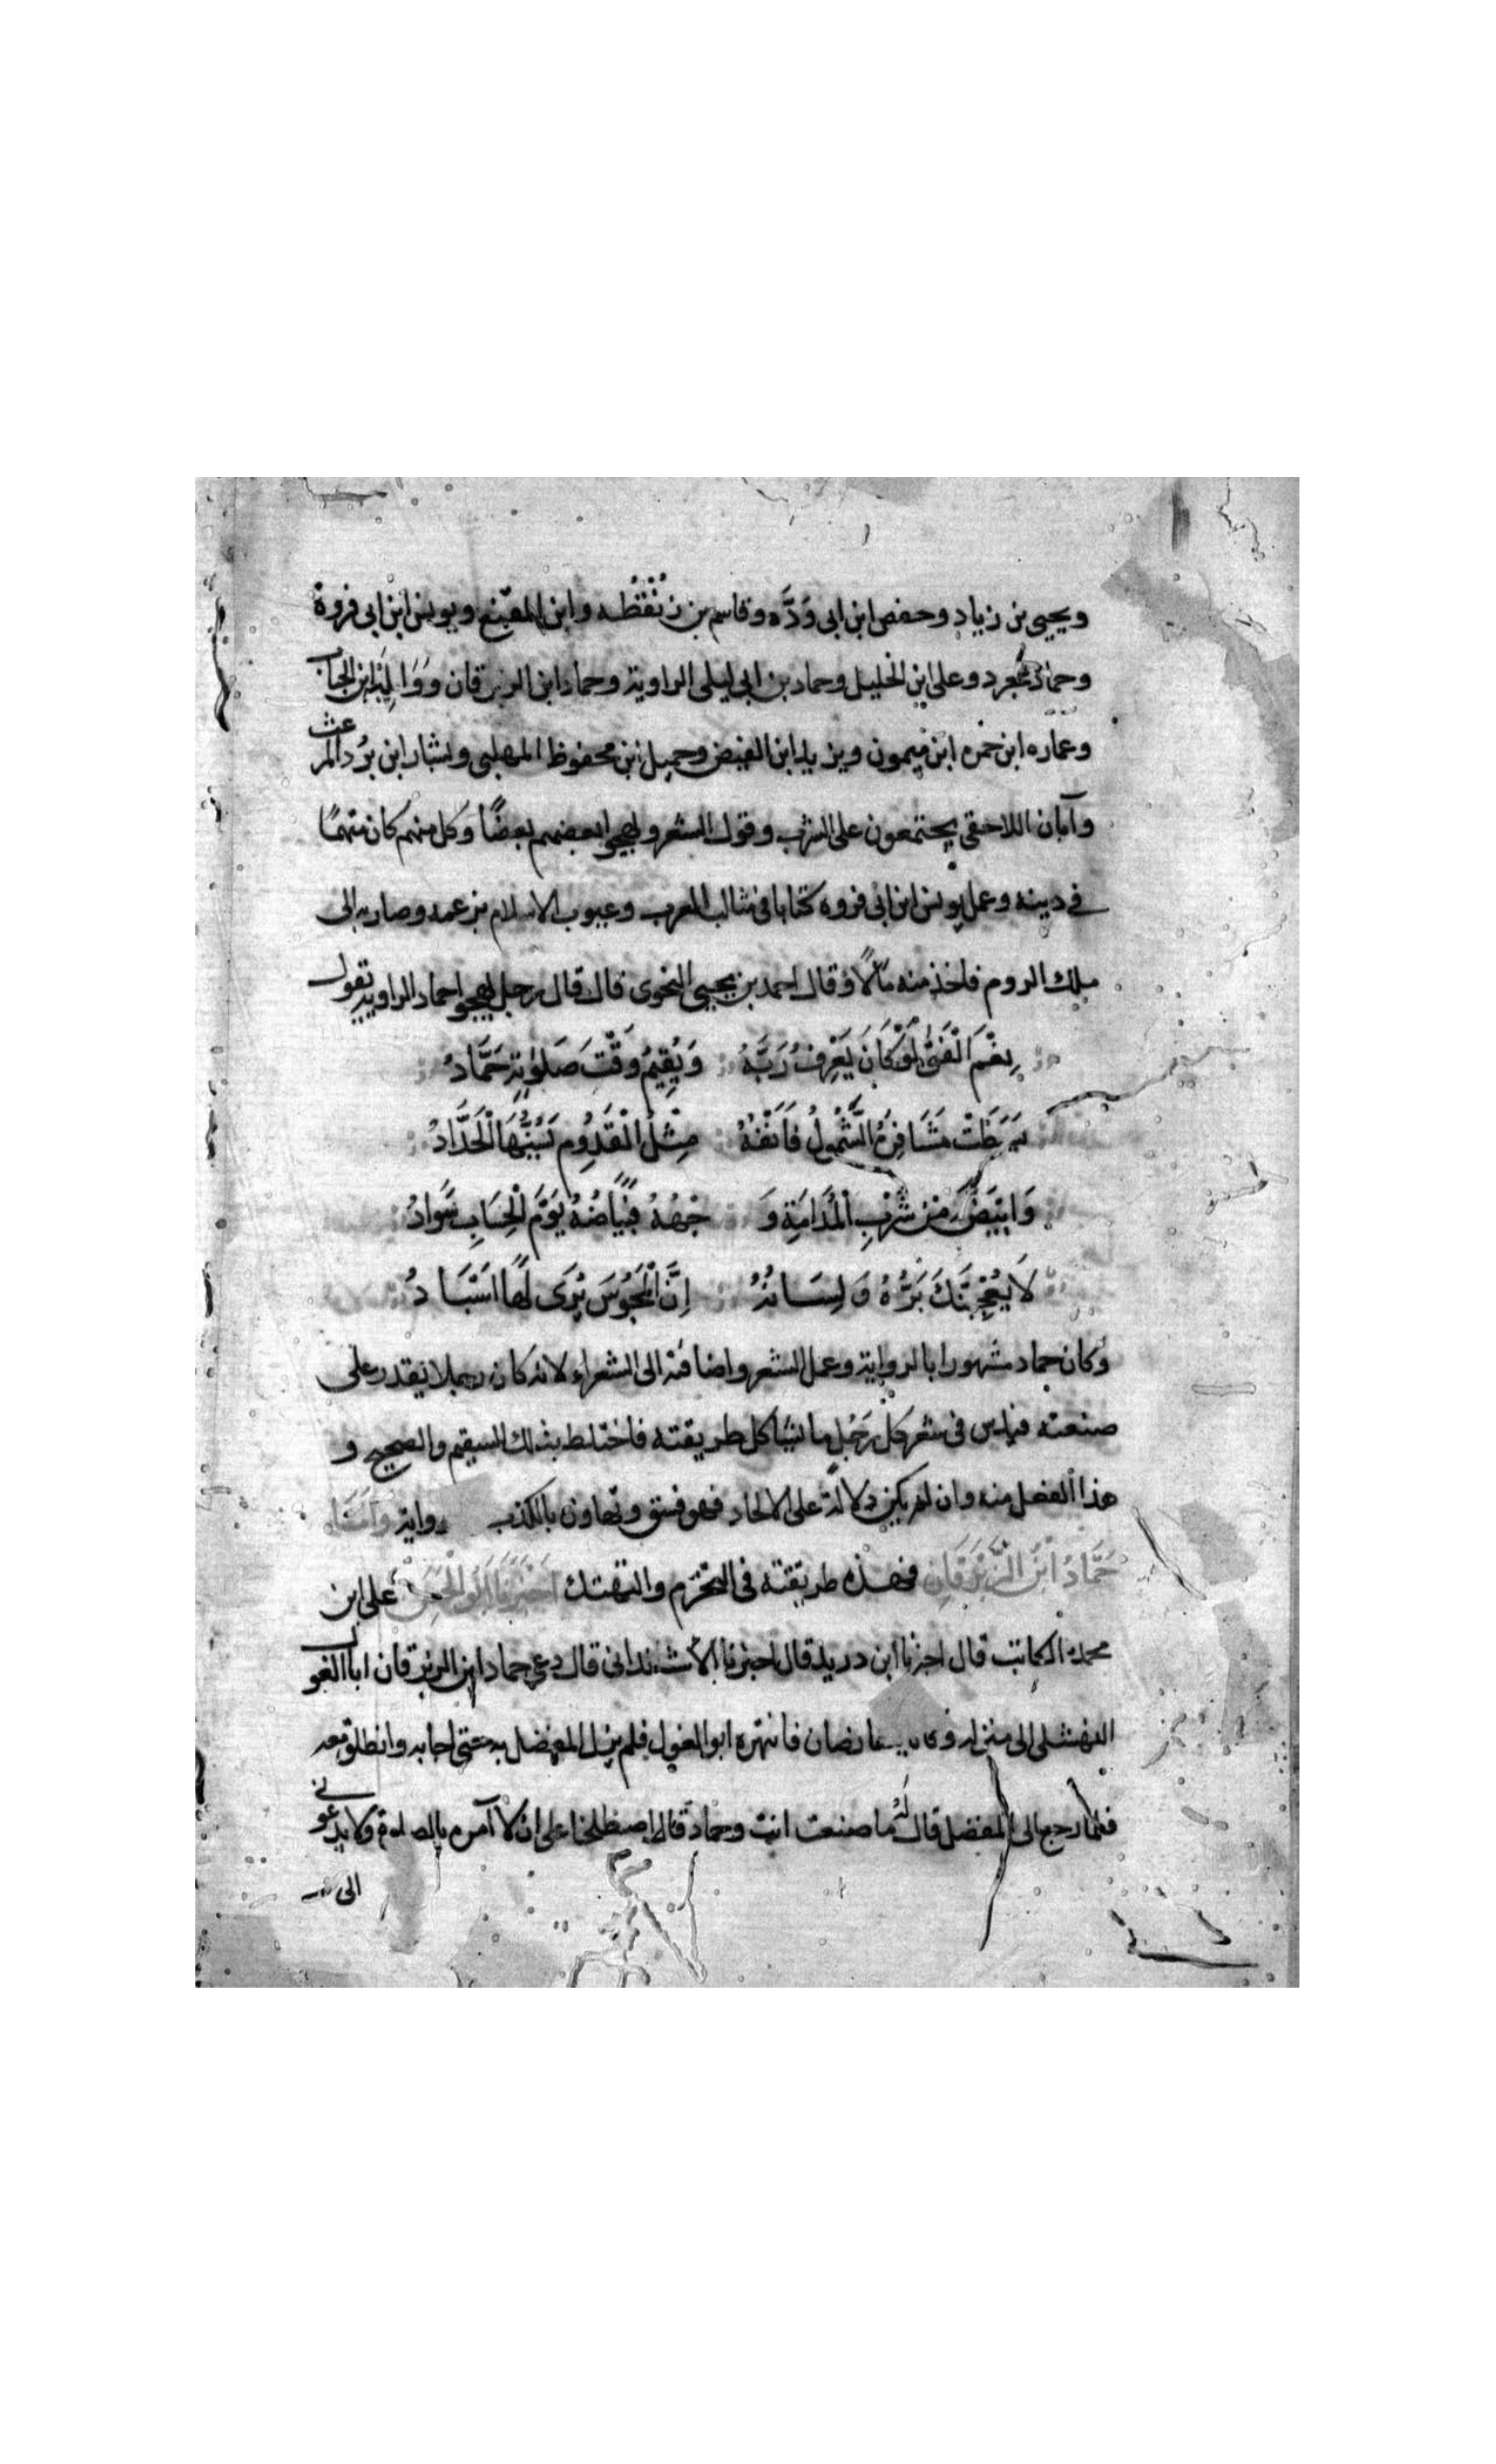 ويحيى بن زياد وحفص ابن ابى وَدَّه وقاسم بن زُنْقُطُه وابن المقفع ويونس ابن ابى فروة
وحمادُ عجرد وعلى ابن الخليل وحماد بن ابى ليلى الراوية وحماد ابن الزبرقان وَوَالِبَة ابن الحباب
وعماره ابن حمزه ابن ميمون ويزيد ابن الفيض وجميل ابن محفوظ المهلبى وبشار ابن بُرْد المرعث
وآبان اللاحقى يجتمعون على الشرب وقول الشعر ويهجوا بعضهم بعضًا وكل منهم كان متهمًا
في دينه وعمل يونس ابن ابى فروه كتابا فى مثالب العرب وعيوب الاسلام بزعمه وصار به الى
ملك الروم فاخذ منه مالًا وقال احمد بن يحيى النحوى قال قال رجل يهجوا حماد الراوية يقول
نِعْمَ الْفَتَى لَوْ كَانَ يَعْرِفُ رَبَّهُ وَيُقِيمُ وَقْتَ صَلوٰتِهِ حَمَّادُ
بَسَطَتْ مَشَافِرَهُ الشَّمُولُ فَاَنْفُهُ مِثْلُ الْقَدُومِ يَسُنُّهَا الْحَدَّادُ
وَابْيَضَّ مِنْ شُرْبِ الْمُدَامَةِ وَ جْهُهُ فَبَيَاضُهُ يَوْمَ الْحِسَابِ سَوَادُ
لَا يُعْجِبَنَّكَ بَزُّهُ وَلِسَانُهُ اِنَّ الْمَجُوسَ يُرَى لَهَا اَسْبَادُ
وكان حماد مشهورا بالرواية وعمل الشعر واضافته الى الشعراء لانه كان رجلا يقدر على
صنعته فيدس فى شعر كل رَجُلٍ ما يشاكل طريقته فاختلط بذلك السقيم والصحيح و
هذا الفعل منه وان لم يكن دلالة على الالحاد فهو فسق وتهاون بالكذب رواية وَاَمَّا
حَمَّادُ ابْنُ الزِّبْرَقَانِ فهذه طريقته فى التخرم والتهتك اَخْبَرَنَا اَبُو الْحَسَنِ على ابن
محمد الكاتب قال اخبرنا ابن دريد قال اخبرنا الاشنندانى قال دعى حماد ابن الزبرقان ابا الغول
النهشلى الى منزله وكانا يتقارضان فانتهره ابو الغول فلم يزل المفضل به حتى اجابه وانطلق معه
فلما رجع الى المفضل قال لَهُ ما صنعت انت وحماد قال اصطلحنا على ان لا آمره بالصلوة ولا يدعونى
الى